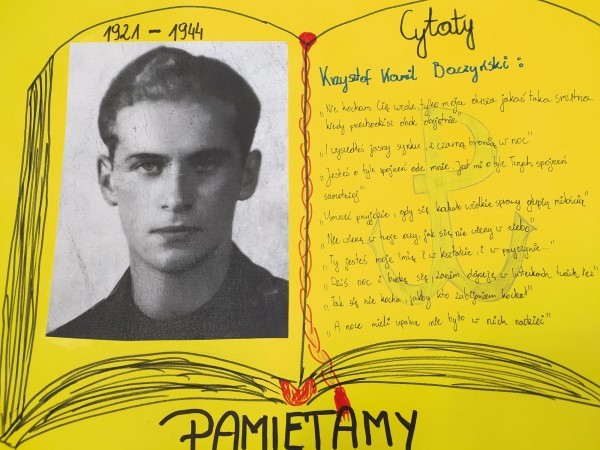 1921 - 1944
Cytaty
Krzysztof Kamil Baczyński :
„Nie kocham Cię wcale, tylko moja dusza jakaś taka smutna
kiedy przechodzisz obok obojętnie"
„I wyszedłeś jasny synku, z czarną bronią w noc"
„Jesteś o tyle spojrzeń ode mnie. Jest mi o tyle Twych spojrzeń
samotniej"
„Umrzeć przyjdzie, gdy się kochało wielkie sprawy głupią miłością"
„Nie wierzę w twoje oczy, jak się nie wierzy w niebo"
„Ty jesteś moje imię i w kształcie, i w przyczynie..."
„Dziś noc i
się, zanim dojdzie w
twoich łez"
„Tak się nie kocha, jakby kto zabijaniem kochał"
„A noce mieli upalne, nie było w nich nadziei"
PAMIĘTAMY